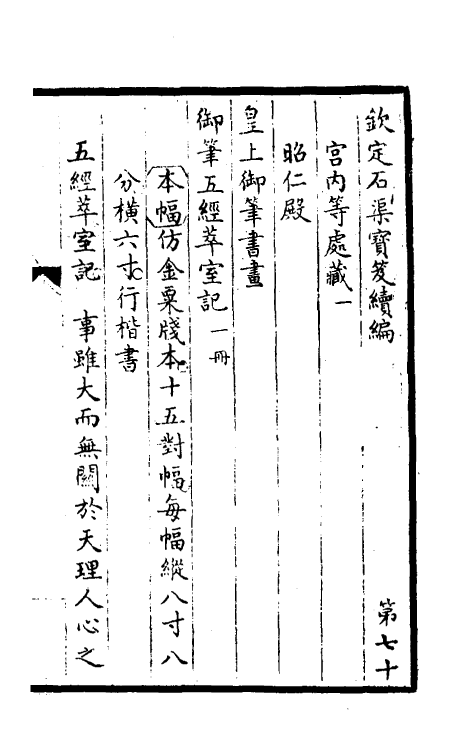 欽定石渠寶笈續編　第七十
宮内等處藏一
昭仁殿
皇上御筆書畫
御筆五經萃室記一冊
本幅仿金粟牋本十五對幅每幅縱八寸八
分橫六寸行楷書
五經萃室記　事雖大而無關於天理人心之